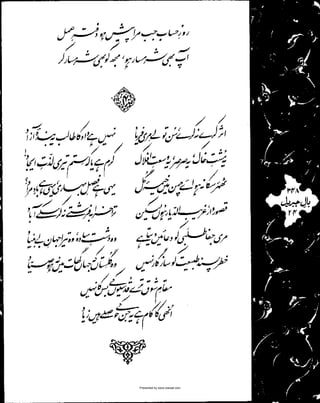 روزِ حساب جب مرا پیش ہو دفترِ عمل
آپ بھی شرمسار ہو، مجھ کو بھی شرمسار کر
اثر کرے نہ کرے، سن تو لے مری فریاد
نہیں ہے داد کا طالب یہ بندۂ آزاد
یہ مشتِ خاک، یہ صرصر، یہ وسعتِ افلاک
کرم ہے یا کہ ستم تیری لذتِ ایجاد
ٹھہر سکا نہ ہوائے چمن میں خیمۂ گل
یہی ہے فصلِ بہاری، یہی ہے بادِ مراد
قصوروار، غریب الدیار ہوں لیکن
ترا خرابہ فرشتے نہ کر سکے آباد
مری جفا طلبی کو دعائیں دیتا ہے
وہ دشتِ سادہ، وہ تیرا جہانِ بے بنیاد
خطر پسند طبیعت کو سازگار نہیں
وہ گلستاں کہ جہاں گھات میں نہ ہو صیاد
مقامِ شوق ترے قدسیوں کے بس کا نہیں
انھی کا کام ہے یہ جن کے حوصلے ہیں زیاد
۳۳۸
بالِ جبریل
۲۲
Presented by